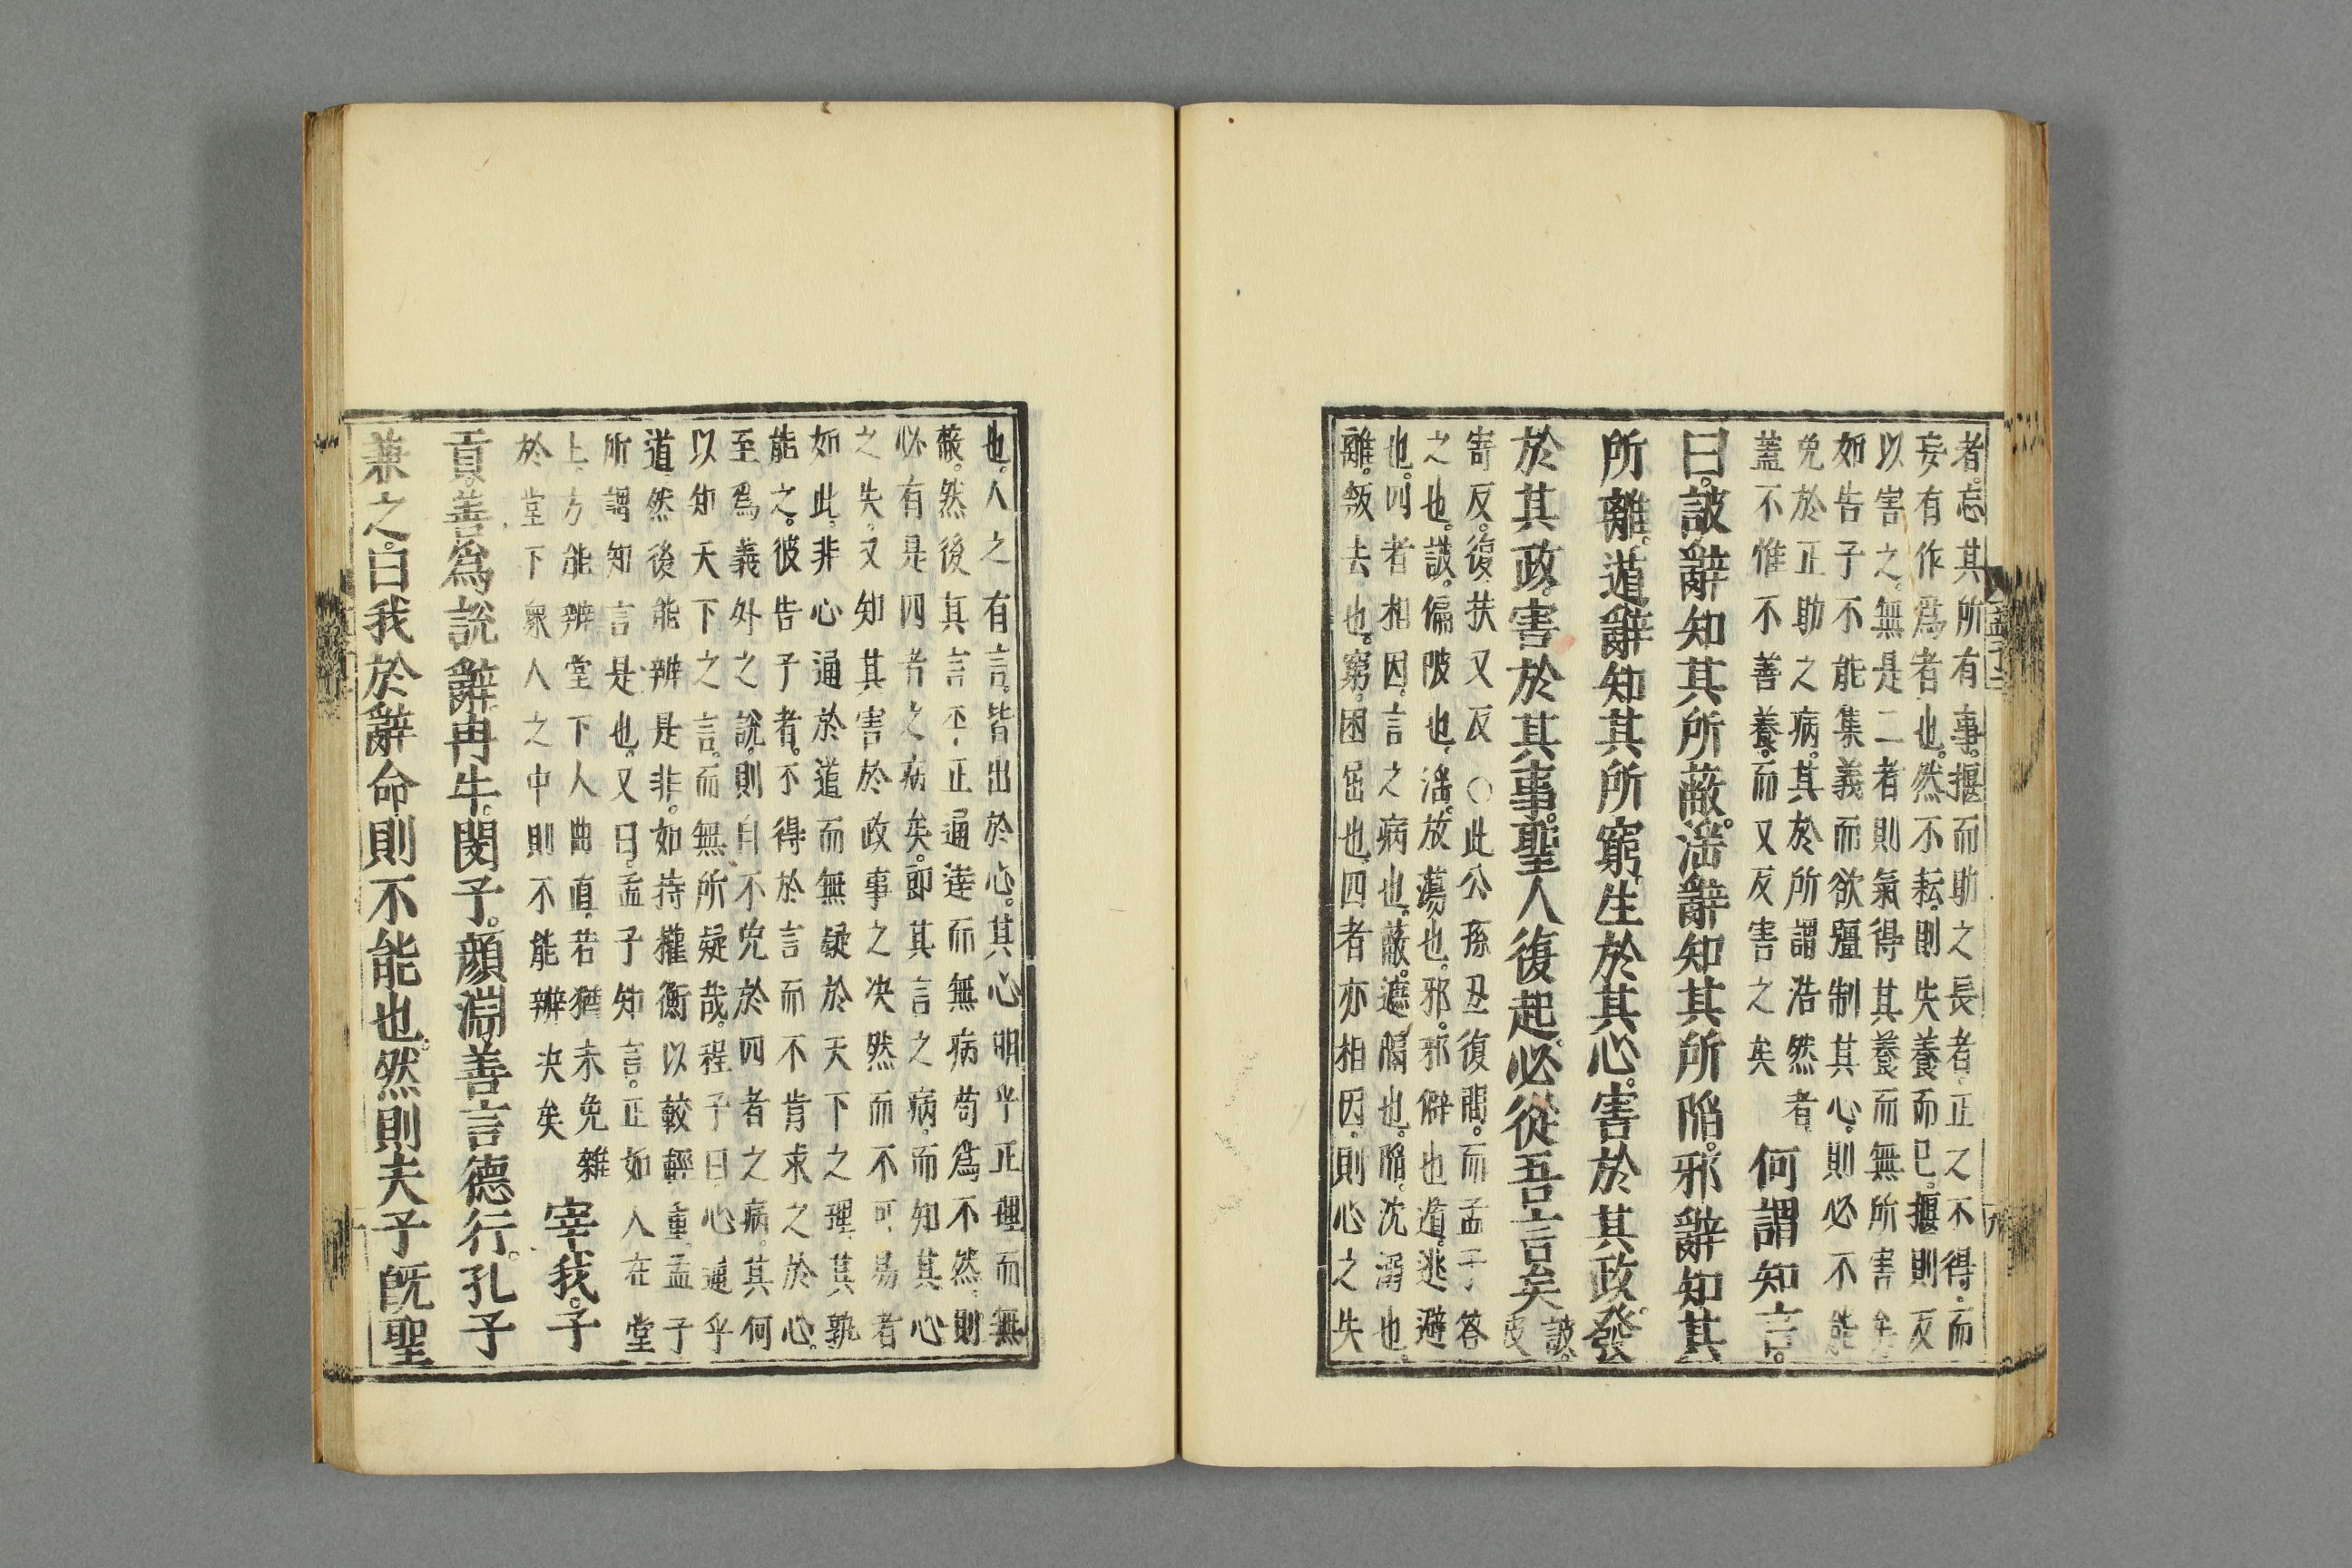 者。忘其所有事。揠而助之長者。正之不得。而
妄有作爲者也。然不耘。則失養而已。揠則反
以害之。無是二者則氣得其養而無所害矣
如告子不能集義而欲彊制其心。則必不能
免於正助之病。其於所謂浩然者
蓋不惟不善養。而又反害之矣
何謂知言。
曰。詖辭知其所蔽。淫辭知其所陷。邪辭知其
所離。遁辭知其所窮。生於其心。害於其政。發
於其政。害於其事。聖人復起。必從吾言矣
詖。
皮
寄反。復。扶又反○此公孫丑復問。而孟子答
之也。詖。偏陂也。淫。放蕩也。邪。邪僻也遁。逃避
也。四者相因。言之病也。蔽。遮隔也。陷。沈溺也。
離。叛去也。窮。困屈也。四者亦相因。則心之失
孟子二
九
也。人之有言。皆出於心。其心明乎正理而無
蔽。然後其言平正通達而無病苟爲不然。則
必有是四者之病矣。卽其言之病。而知其心
之失。又知其害於政事之决然而不可易者
如此。非心通於道而無疑於天下之理。其孰
能之。彼告子者。不得於言而不肯求之於心。
至爲義外之說。則自不免於四者之病。其何
以知天下之言。而無所疑哉。程子曰。心通乎
道。然後能辨是非。如持權衡以較輕重孟子
所謂知言是也。又曰。孟子知言。正如人在堂
上。方能辨堂下人曲直。若猶未免雜
於堂下衆人之中則不能辨决矣
宰我。子
貢。善爲說辭。冉牛。閔子。顏淵。善言德行。孔子
兼之。曰我於辭命則不能也。然則夫子旣聖